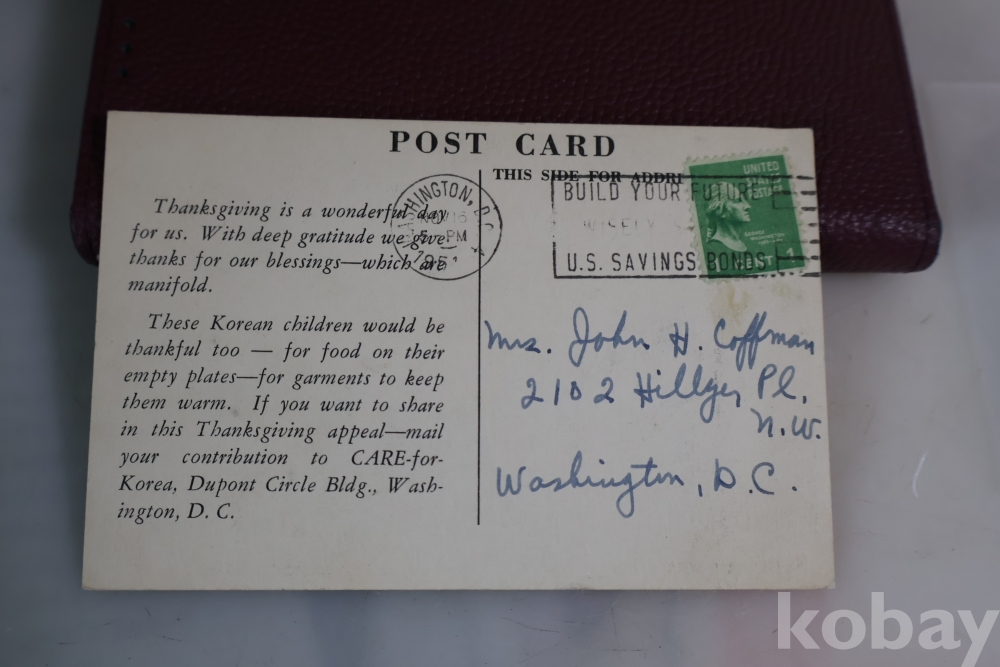 POST CARD
THIS SIDE FOR ADDRE
Thanksgiving is a wonderful day
for us. With deep gratitude we give
thanks for our blessings—which are
manifold.
These Korean children would be
thankful too — for food on their
empty plates—for garments to keep
them warm. If you want to share
in this Thanksgiving appeal—mail
your contribution to CARE-for-
Korea, Dupont Circle Bldg., Wash-
ington, D. C.
WASHINGTON, D.C.
NOV 16
5 - PM
1951
BUILD YOUR FUTURE
WISELY
U.S. SAVINGS BONDS
UNITED
STATES
POSTAGE
1
Mrs. John H. Coffman
2102 Hillyer Pl.
N.W.
Washington, D.C.
kobay